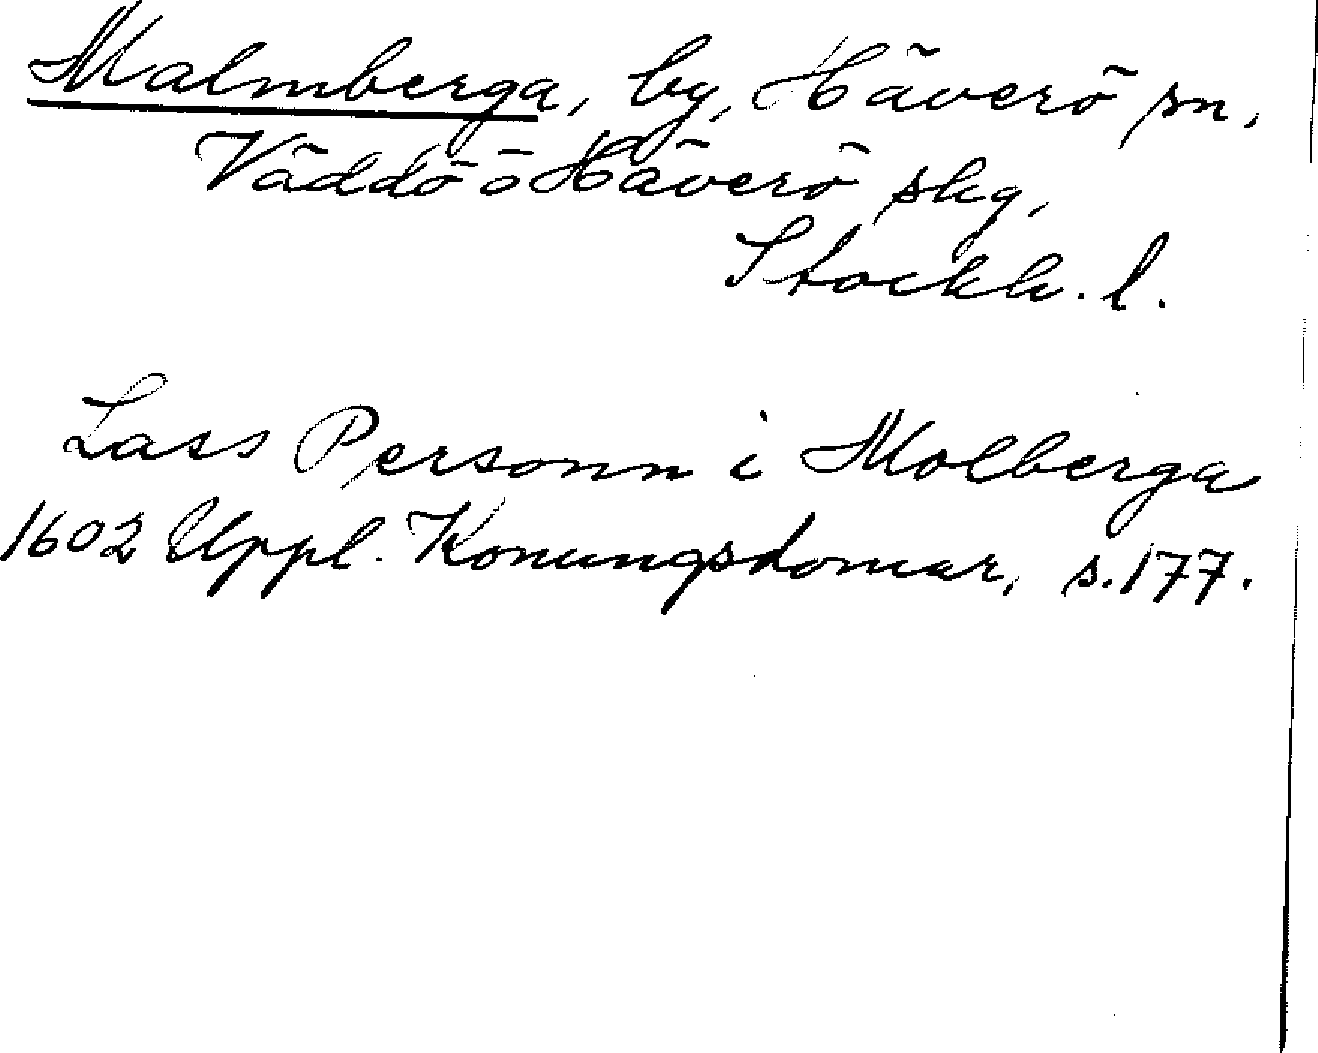 Malmberga, by, Häverö sn,
Väddö o Häverö skg,
Stockh. l.
Lass Personn i Molberga
1602 Uppl. Konungsdomar, s. 177.